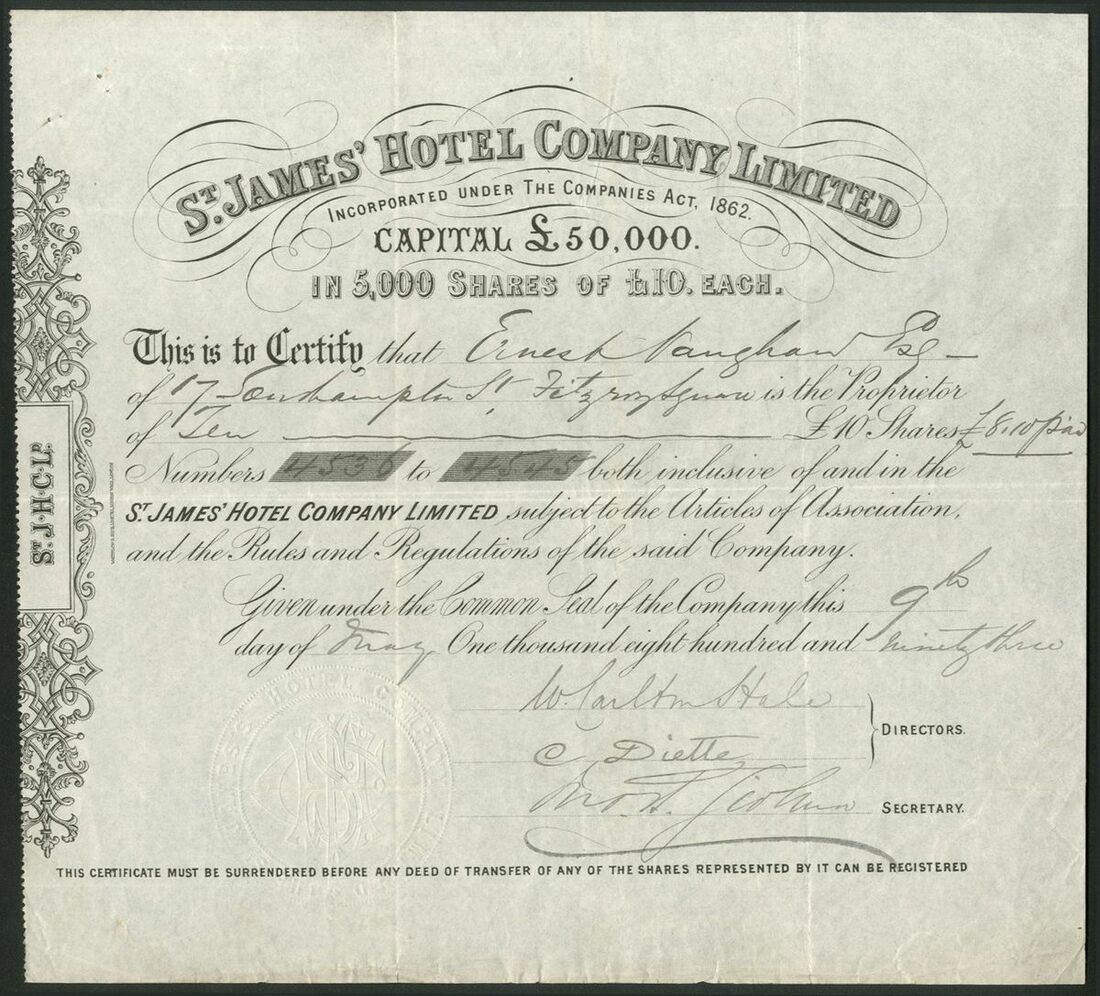 ST. JAMES' HOTEL COMPANY LIMITED
INCORPORATED UNDER THE COMPANIES ACT, 1862.
CAPITAL £50,000.
IN 5,000 SHARES OF £10. EACH.
This is to Certify that Ernest Vaughan Esq
of 17 Southampton St. Fitzroy Square is the Proprietor
of Ten £10 Shares £8.10 paid
Numbers 4536 to 4545 both inclusive of and in the
ST. JAMES' HOTEL COMPANY LIMITED subject to the Articles of Association,
and the Rules and Regulations of the said Company.
Given under the Common Seal of the Company this 9th
day of May One thousand eight hundred and ninety three
W. Carlton Hale
C Diette
DIRECTORS.
SECRETARY.
THIS CERTIFICATE MUST BE SURRENDERED BEFORE ANY DEED OF TRANSFER OF ANY OF THE SHARES REPRESENTED BY IT CAN BE REGISTERED
ST. J. H. C. LD.